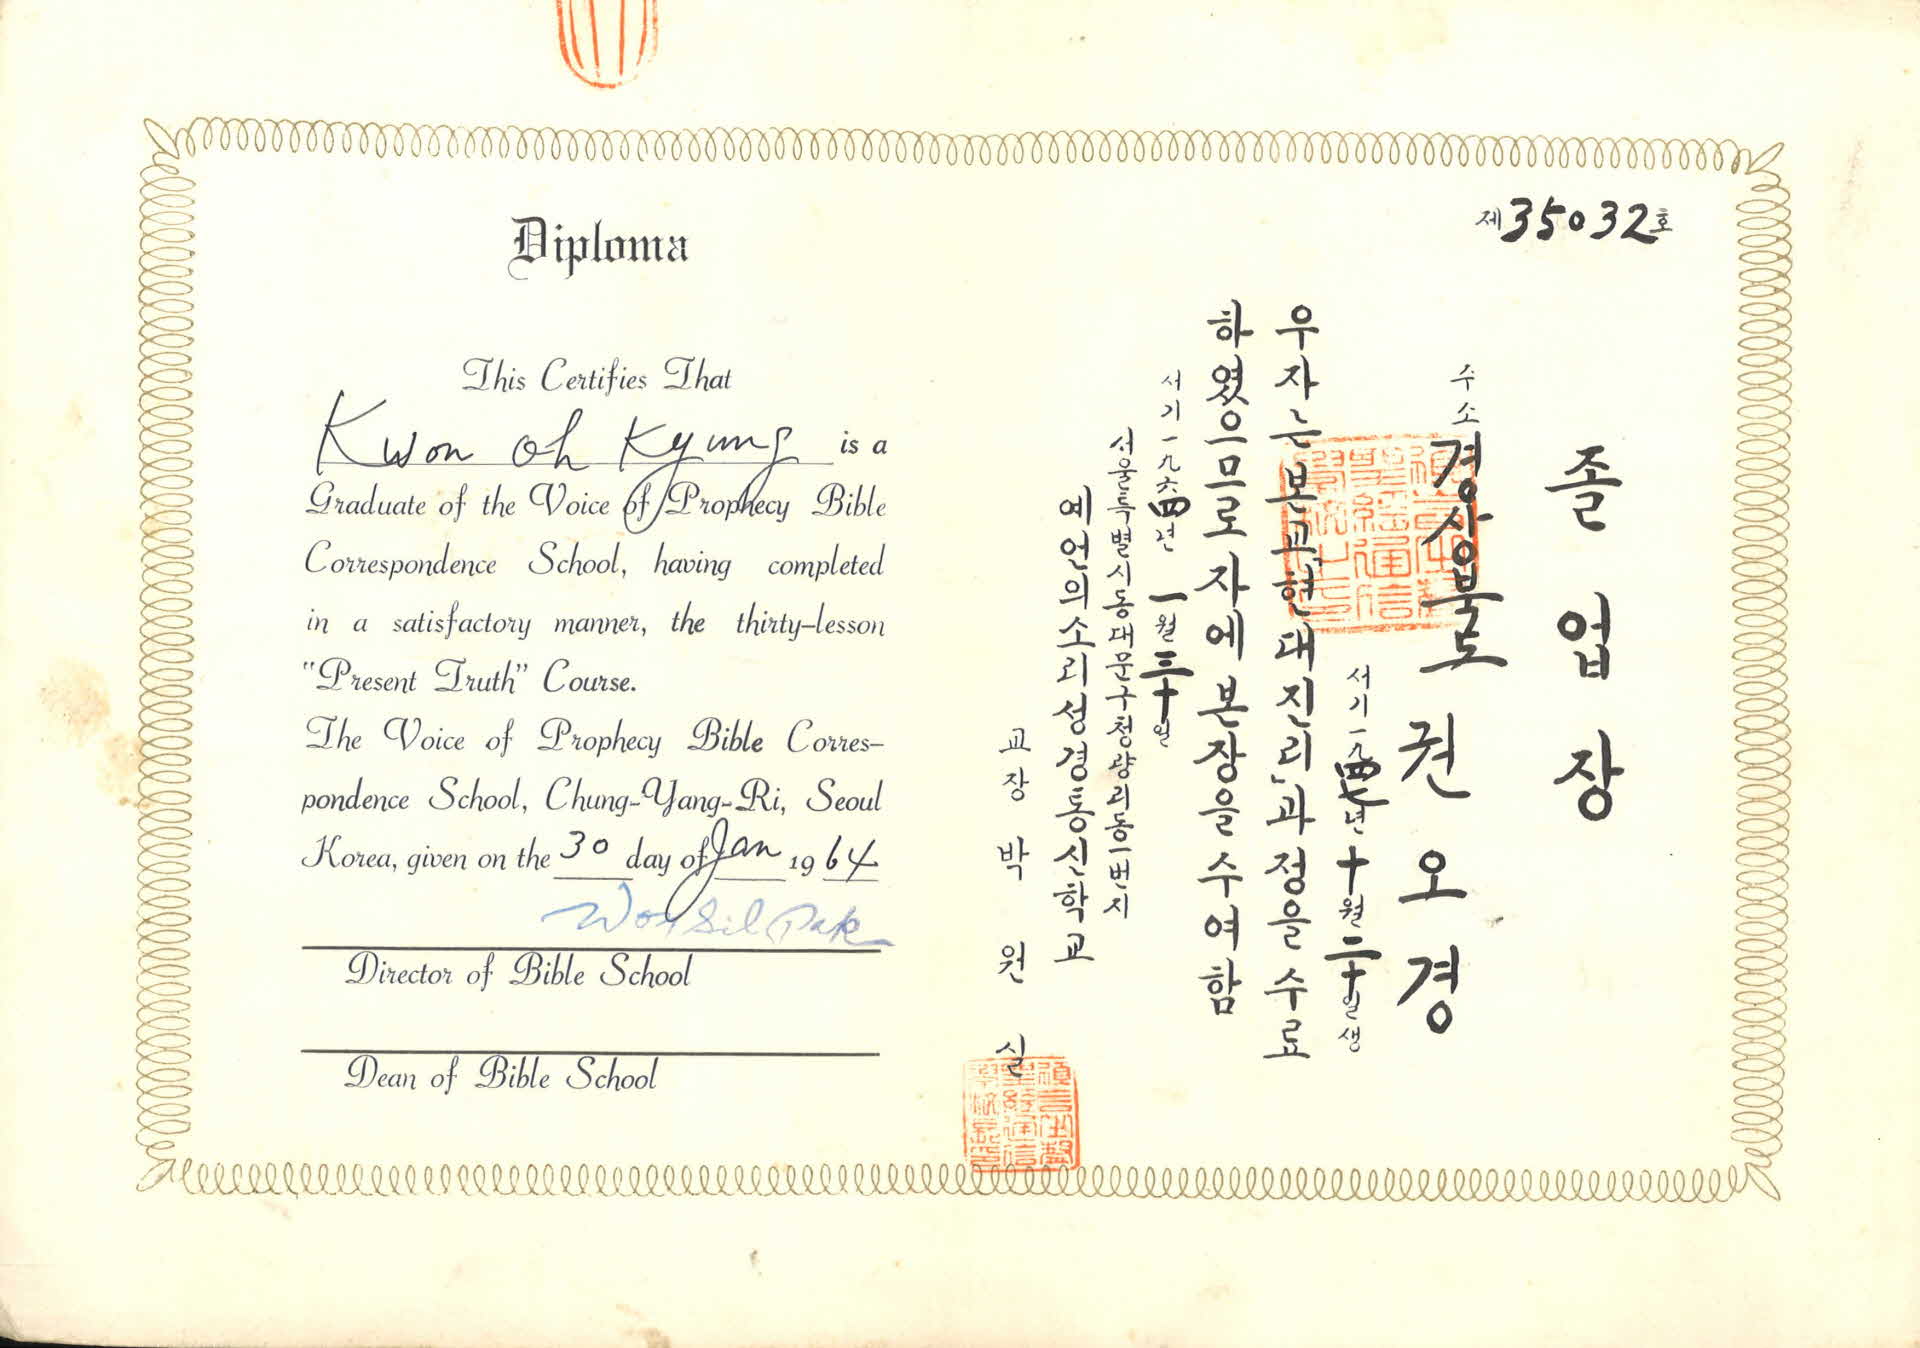 Diploma
This Certifies That
Kwon Oh Kyung is a
Graduate of the Voice of Prophecy Bible
Correspondence School, having completed
in a satisfactory manner, the thirty-lesson
"Present Truth" Course.
The Voice of Prophecy Bible Corres-
pondence School, Chung-Yang-Ri, Seoul
Korea, given on the 30 day of Jan 1964
Won Sil Pak
Director of Bible School
Dean of Bible School
제35032호
졸업장
주소 경상북도 권오경
서기一九四七년 十월二十일생
우자는본교「현대진리」과정을수료
하였으므로자에본장을수여함
서기一九六四년 一월三十일
서울특별시동대문구청량리동一번지
예언의소리성경통신학교
교장 박원실